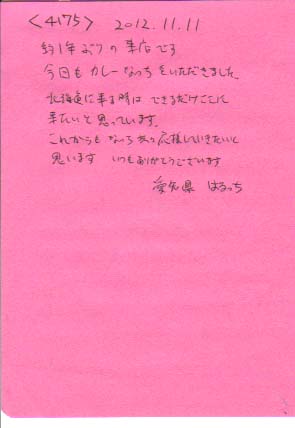 <4175> 2012.11.11
約1年ぶりの来店です
今日もカレーなっちをいただきました。
北海道に来る時はできるだけここに
来たいと思っています。
これからもなっちあり応援していきたいと
思います いつもありがとうございます
愛知県 はるっち